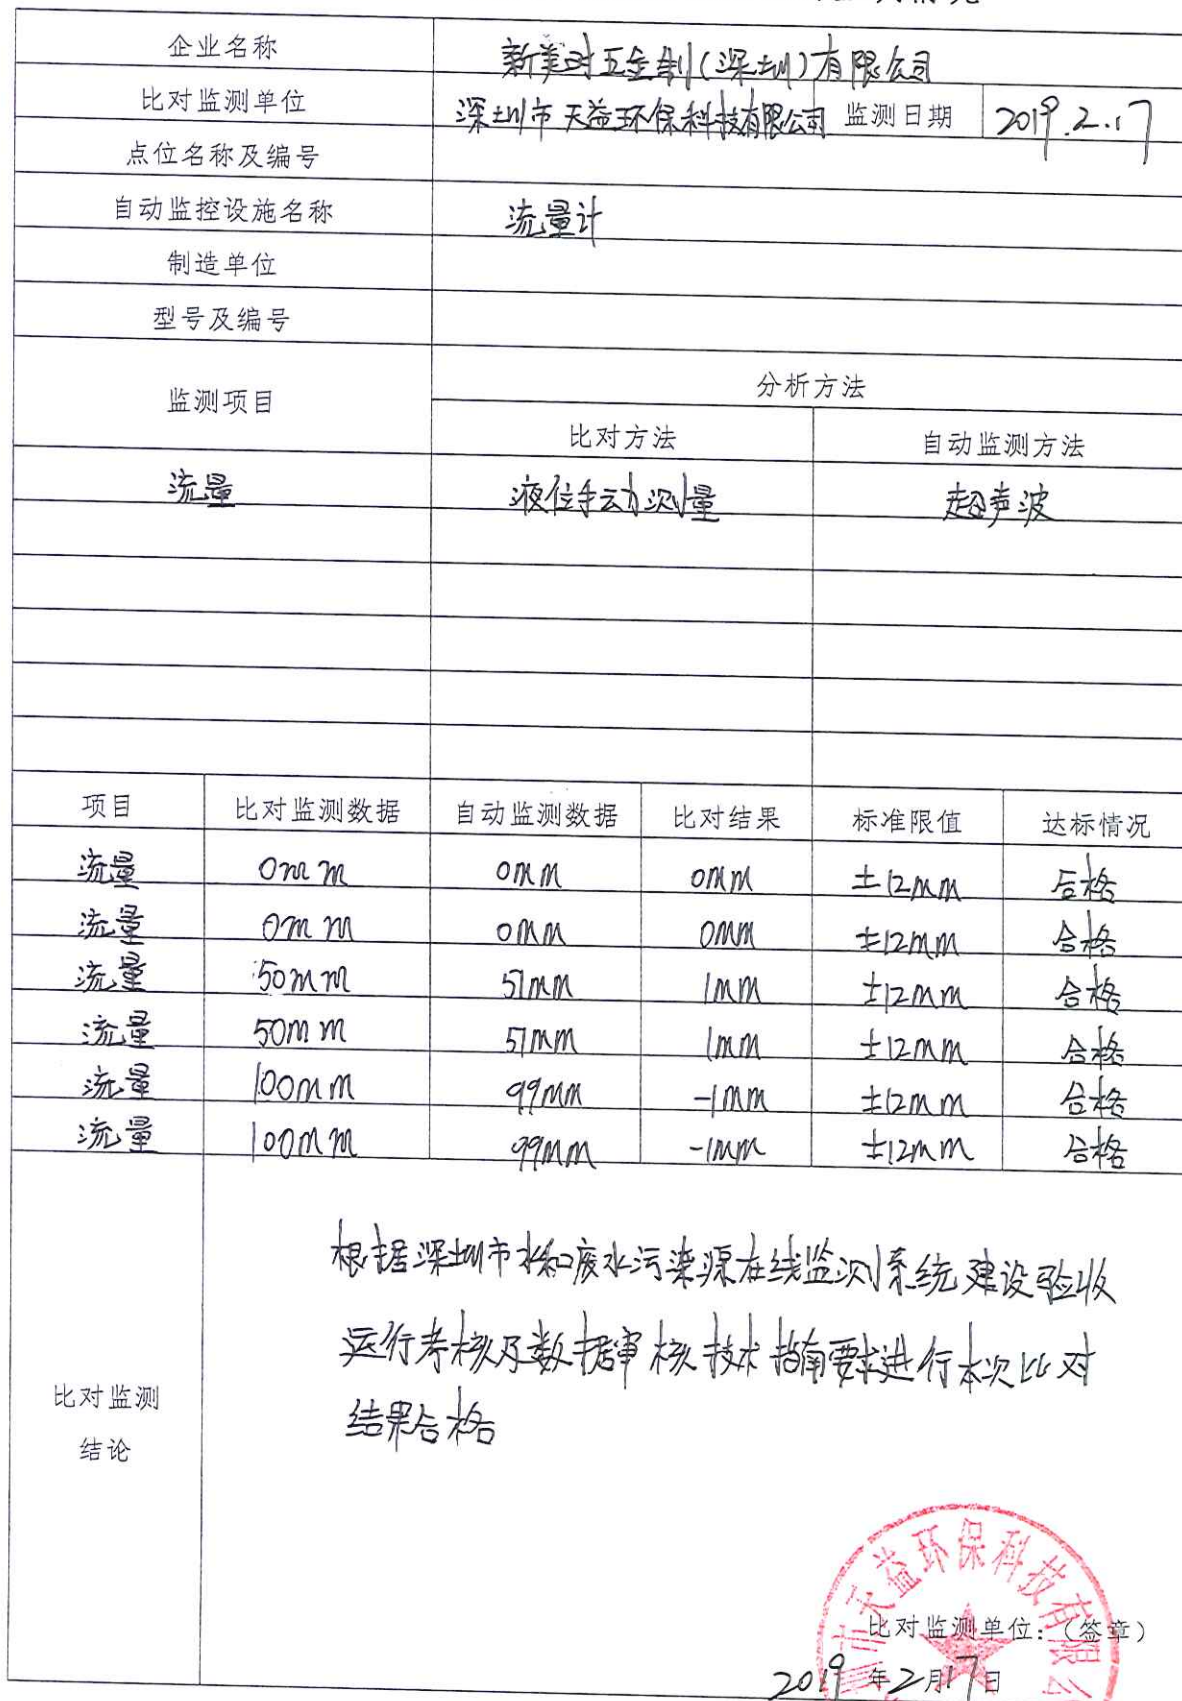 情况
企业名称 新美时五金制(深圳)有限公司
比对监测单位 深圳市天益环保科技有限公司 监测日期 2019.2.17
点位名称及编号
自动监控设施名称 流量计
制造单位
型号及编号
监测项目 分析方法
比对方法 自动监测方法
流量 液位手动测量 超声波
项目 比对监测数据 自动监测数据 比对结果 标准限值 达标情况
流量 0mm 0mm 0mm ±12mm 合格
流量 0mm 0mm 0mm ±12mm 合格
流量 50mm 51mm 1mm ±12mm 合格
流量 50mm 51mm 1mm ±12mm 合格
流量 100mm 99mm -1mm ±12mm 合格
流量 100mm 99mm -1mm ±12mm 合格
根据深圳市水和废水污染源在线监测系统建设验收
运行考核及数据审核技术指南要求进行本次比对
结果合格
比对监测
结论
市天益环保科技有限公
比对监测单位:(签章)
2019年2月17日